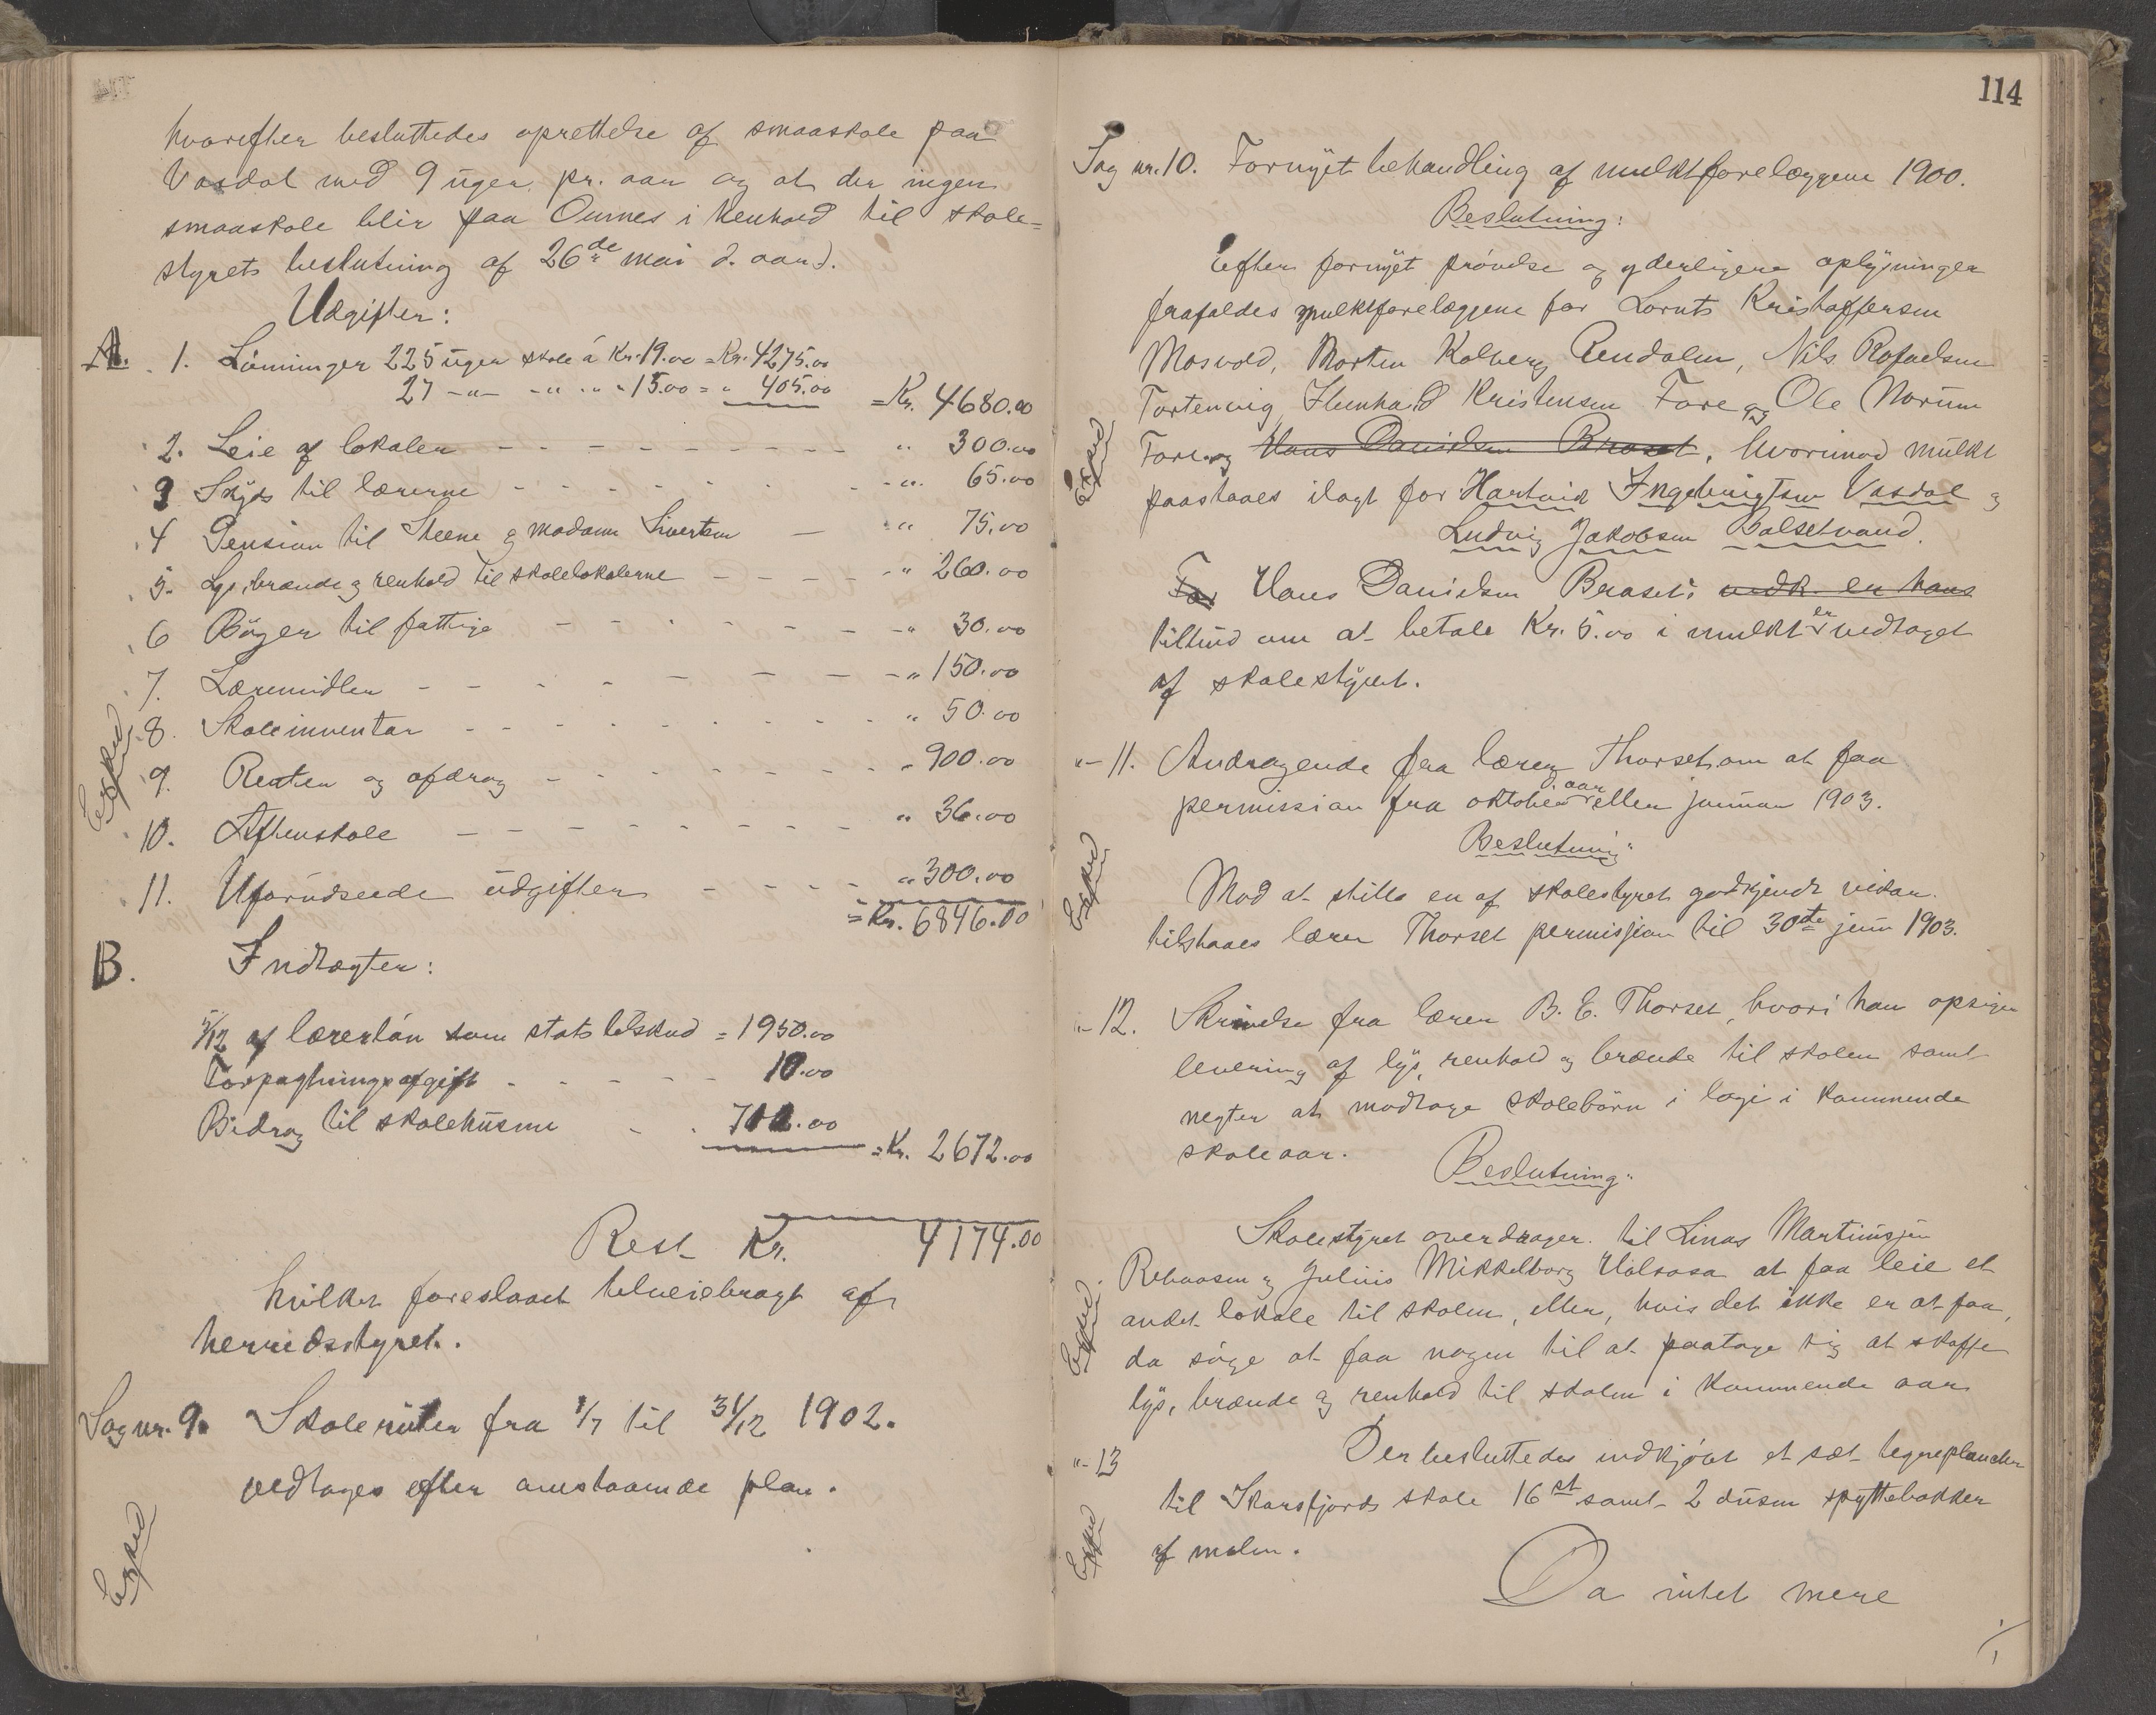 hvorefter besluttedes oprettelse af smaaskole paa
Vasdal med 9 uger pr. aar og at der ingen
smaaskole blir paa Ournes i henhold til skole-
styrets beslutning af 26de mai d. aar).
Udgifter:
A. 1. Lönninger 225 uger skole á Kr. 19.00 = Kr. 4275.00
27 -"- -"- " " 15.00 = " 405.00 = Kr. 4680.00
2. Leie af lokaler - - - - - - - - - " 300.00
3 Skyds til lærerne - - - - - - - - " 65.00
4 Pension til Steene og madam Sivertsen - " 75.00
5. Lys, brænde og renhold til skolelokalerne - - - - " 260.00
6 Böger til fattige - - - - - - - " 30.00
7. Læremidler - - - - - - - - " 150.00
8. Skoleinventar - - - - - - - - " 50.00
9. Renter og afdrag - - - - - - - " 900.00
10. Aftenskole - - - - - - - - " 36.00
11. Uforudseede udgifter - - - - " 300.00
= Kr. 6846.00
Exped
B. Indtægter:
5/12 af lærerlön som statstilskud = 1950.00
Forpagtningsafgift - - - - - 10.00
Bidrag til skolehusene - - 712.00
= Kr. 2672.00
Rest Kr. 4174.00
hvilket foreslaaes tilveiebragt af
herredsstyret.
Sag nr. 9. Skoleruter fra 1/7 til 31/12 1902.
vedtages efter anstaaende plan.
Exped
114
Sag nr. 10. Fornyet behandling af mulktforelæggene 1900.
Beslutning:
Efter fornyet prövelse og yderligere oplysninger
frafaldes mulktforelæggene for Lornts Kristoffersen
Mosvold, Morten Kolberg Rendalen, Nils Rafaelsen
Tortenvig, Henhard Kristensen Fore og Ole Norum
Fore og Hans Danielsen Braset, hvorimod mulkt
paastaaes ilagt for Hartvik Ingebrigtsen Vasdal og
Ludvig Jakobsen Balsetvand.
Exped
For Hans Danielsen Braset: vedk. er hans
tilbud om at betale Kr. 5.00 i mulkt er vedtaget
af skolestyret.
"- 11. Andragende fra lærer Thorset om at faa
permission fra oktober d. aar eller januar 1903.
Beslutning:
Mod at stille en af skolestyret godkjendt vikar
tilstaaes lærer Thorset permission til 30te juni 1903.
Exped
"- 12. Skrivelse fra lærer B. E. Thorset, hvori han opsiger
levering af lys, renhold og brænde til skolen samt
negter at modtage skolebörn i logi i kommende
skoleaar.
Beslutning:
Skolestyret overdrager til Linas Martinussen
Rebaasen og Julius Mikkelborg Halsaaa at faa leie et
andet lokale til skolen, eller, hvis det ikke er at faa,
da söge at faa nogen til at paatage sig at skaffe
lys, brænde og renhold til skolen i kommende aar.
Exped
"- 13 Der besluttedes indkjöbt et sæt tegneplancher
til Skarsfjords skole 16 st samt 2 dusin spyttebakker
af malm.
Exped
Da intet mere